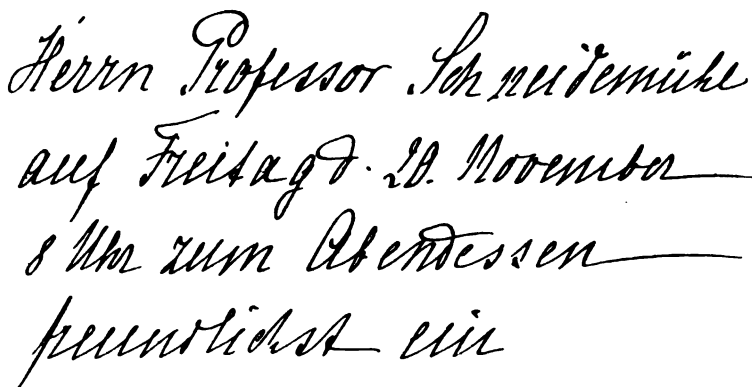 Herrn Professor Schneidemühl
auf Freitag d. 20. November
8 Uhr zum Abendessen
freundlichst ein